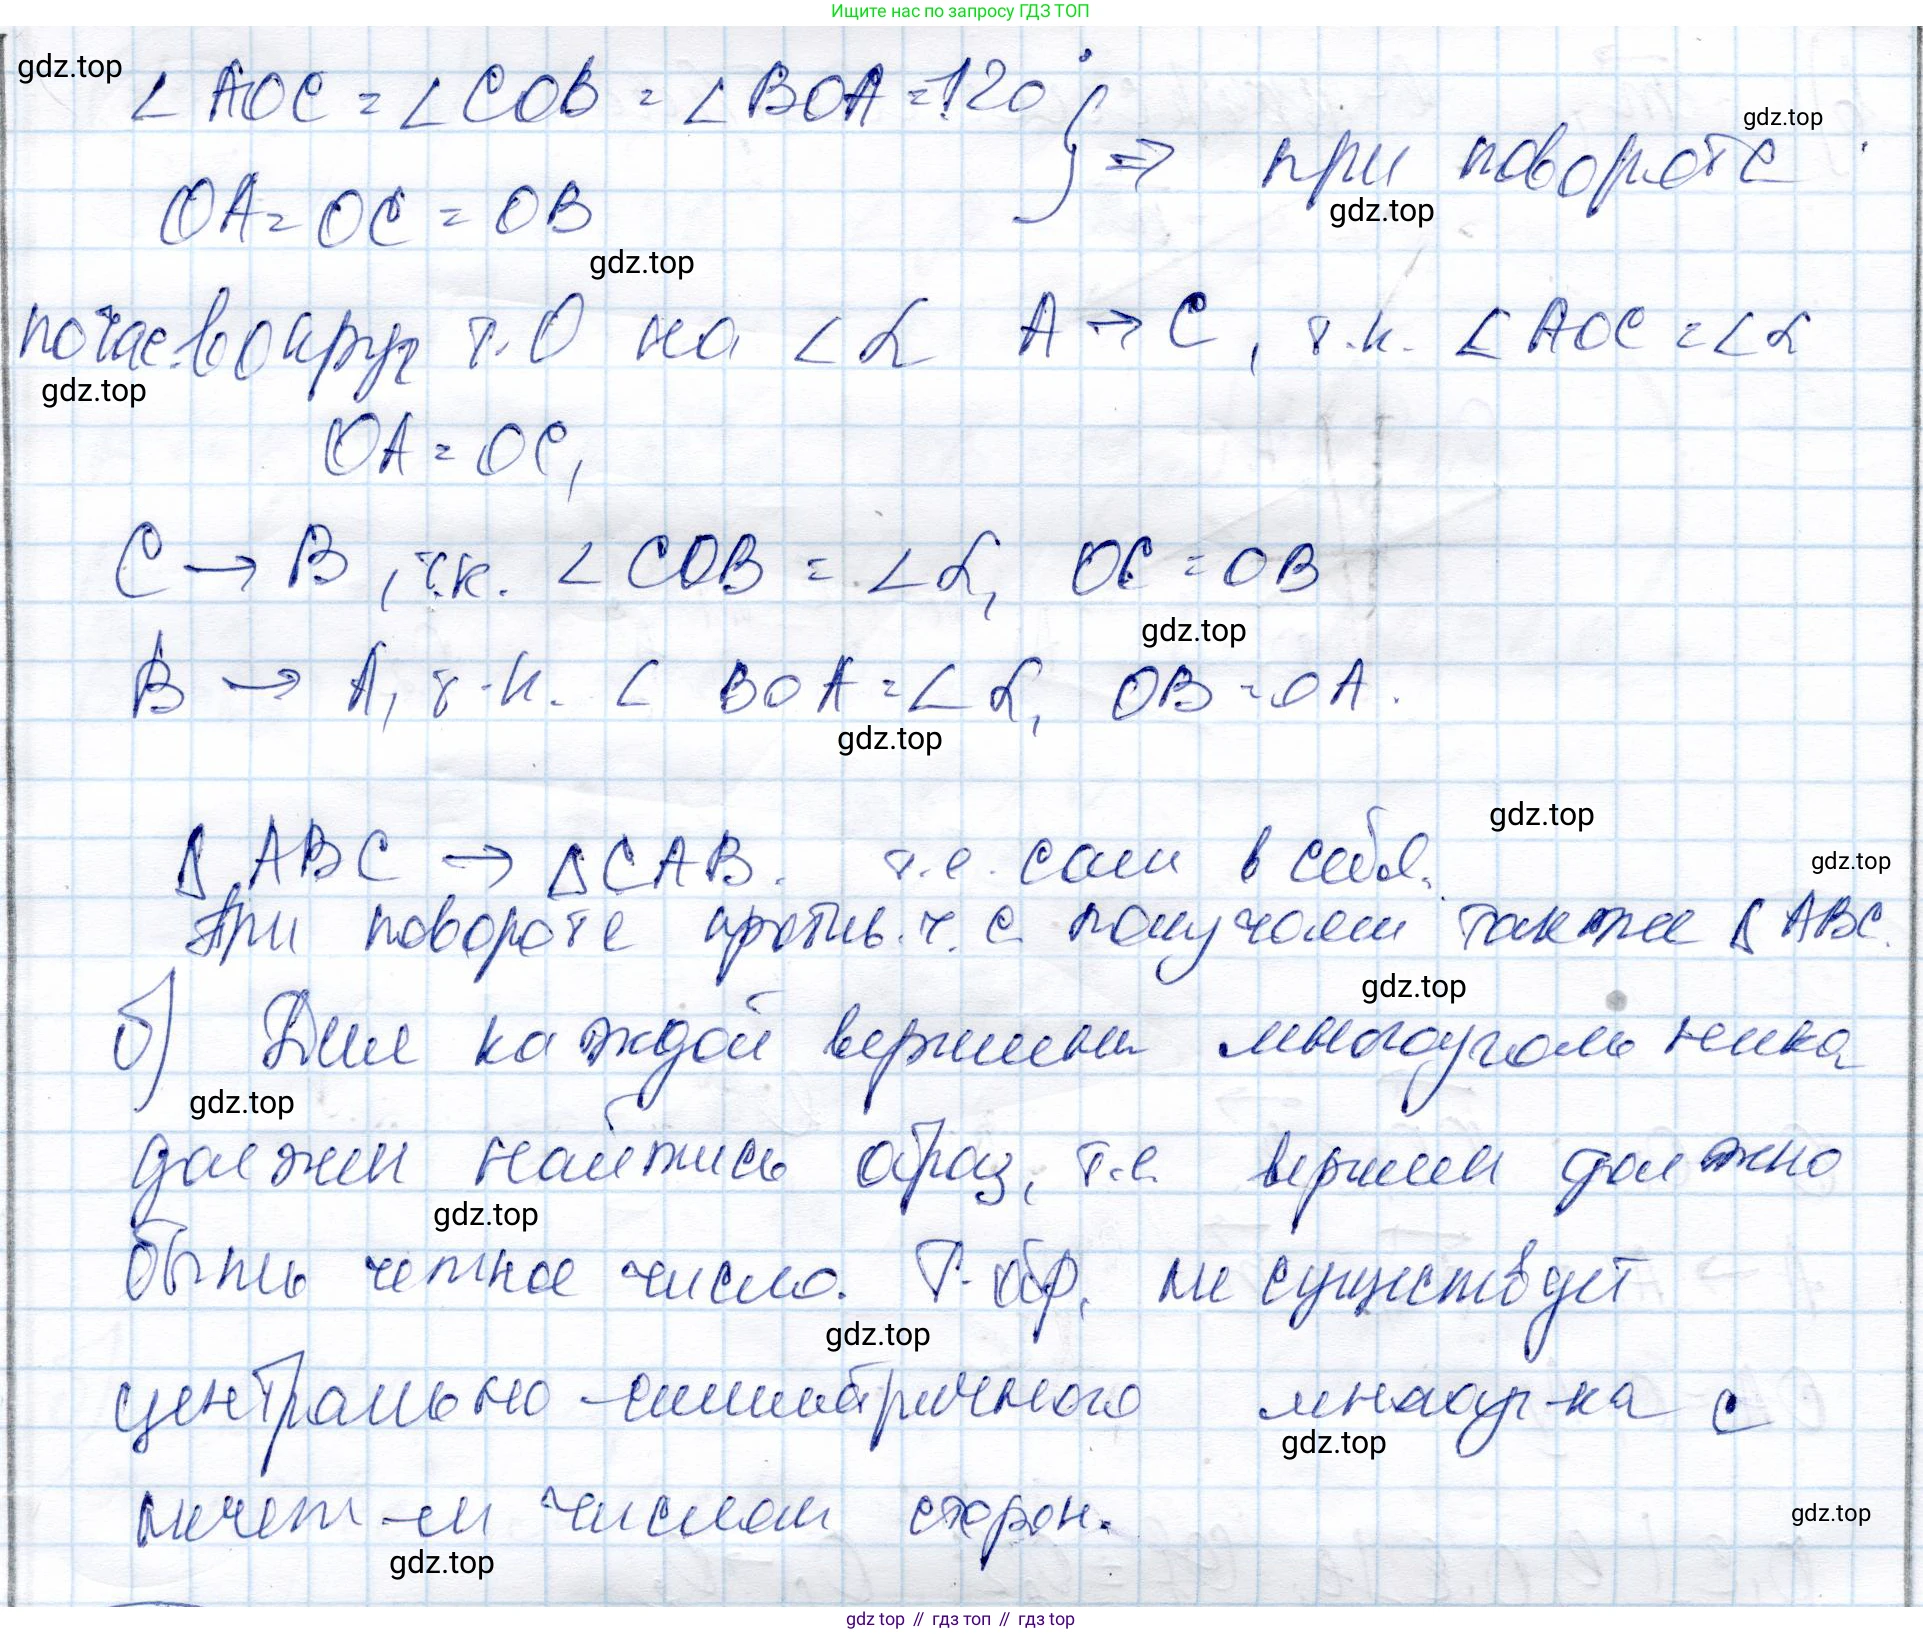 Ищите нас по запросу ГДЗ ТОП
gdz.top
∠AOC = ∠COB = ∠BOA = 120°
gdz.top
} ⇒ при повороте
OA = OC = OB
gdz.top
gdz.top
по час. вокруг т. O на ∠α A → C, т.к. ∠AOC = ∠α
gdz.top
OA = OC,
C → B, т.к. ∠COB = ∠α, OC = OB
gdz.top
B → A, т.к. ∠BOA = ∠α, OB = OA.
gdz.top
gdz.top
Δ ABC → Δ CAB. т.е. сам в себя.
gdz.top
При повороте против. ч. с. получаем также Δ ABC.
gdz.top
б) Для каждой вершины многоугольника
gdz.top
должен найтись образ, т.е. вершин должно
gdz.top
быть четное число. Т. обр. не существует
gdz.top
центрально-симметричного многоуг-ка с
gdz.top
нечет-м числом сторон.
gdz.top
gdz.top
gdz top // гдз топ // гдз top